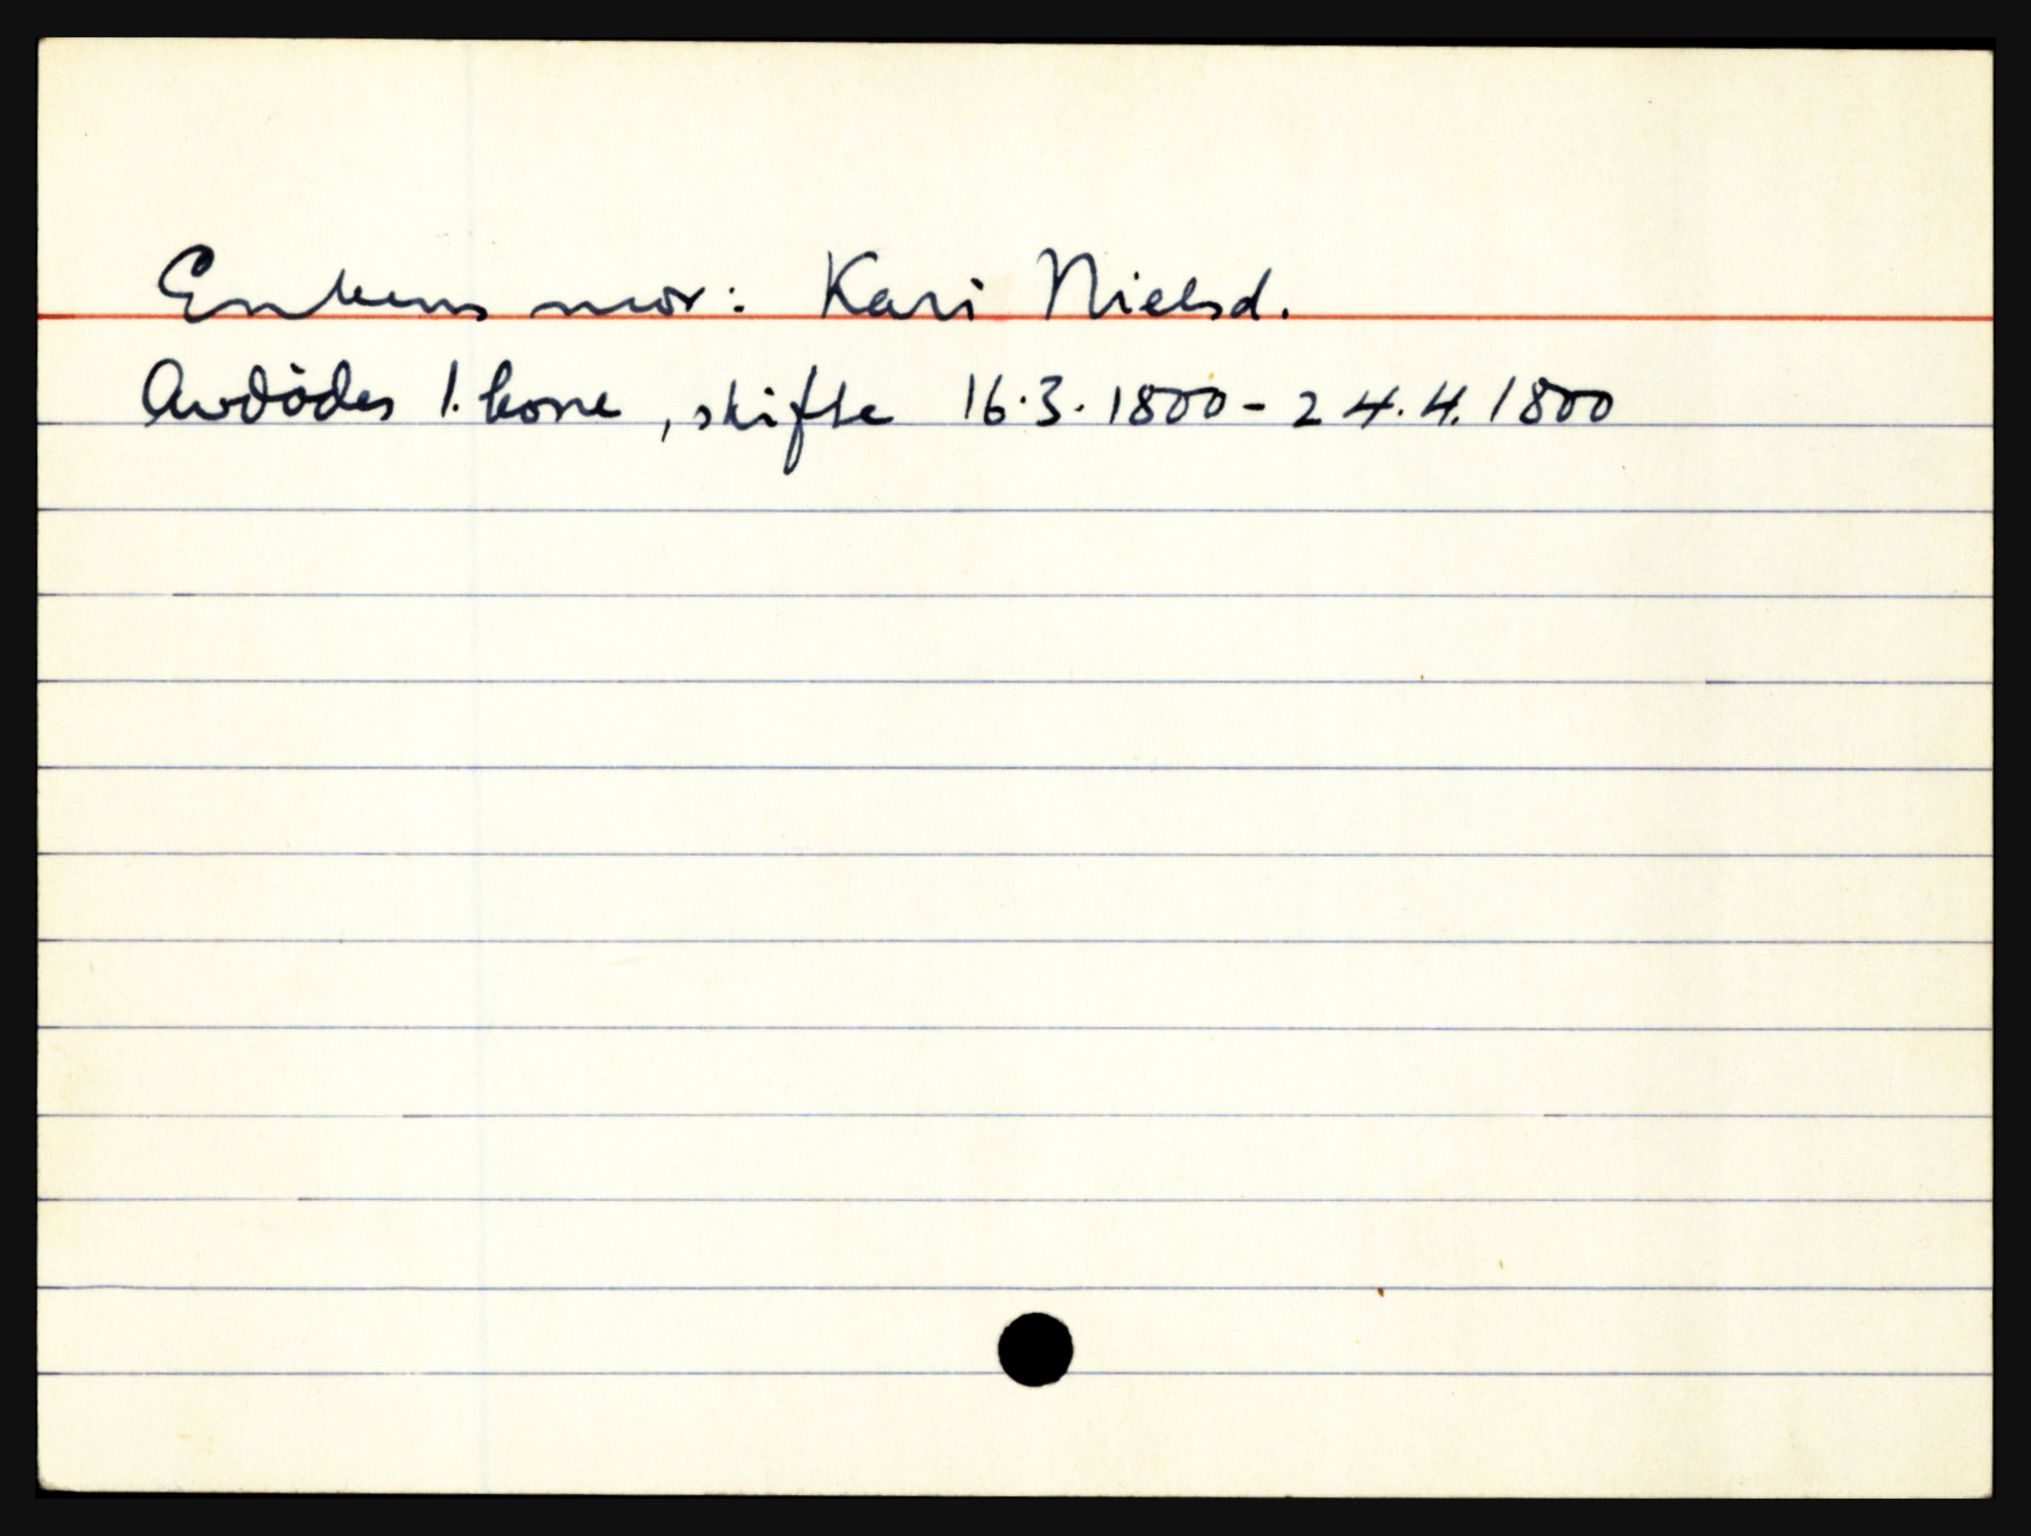 Enkens mor: Kari Nielsd.
Avdødes 1. kone, skifte 16.3.1800 - 24.4.1800